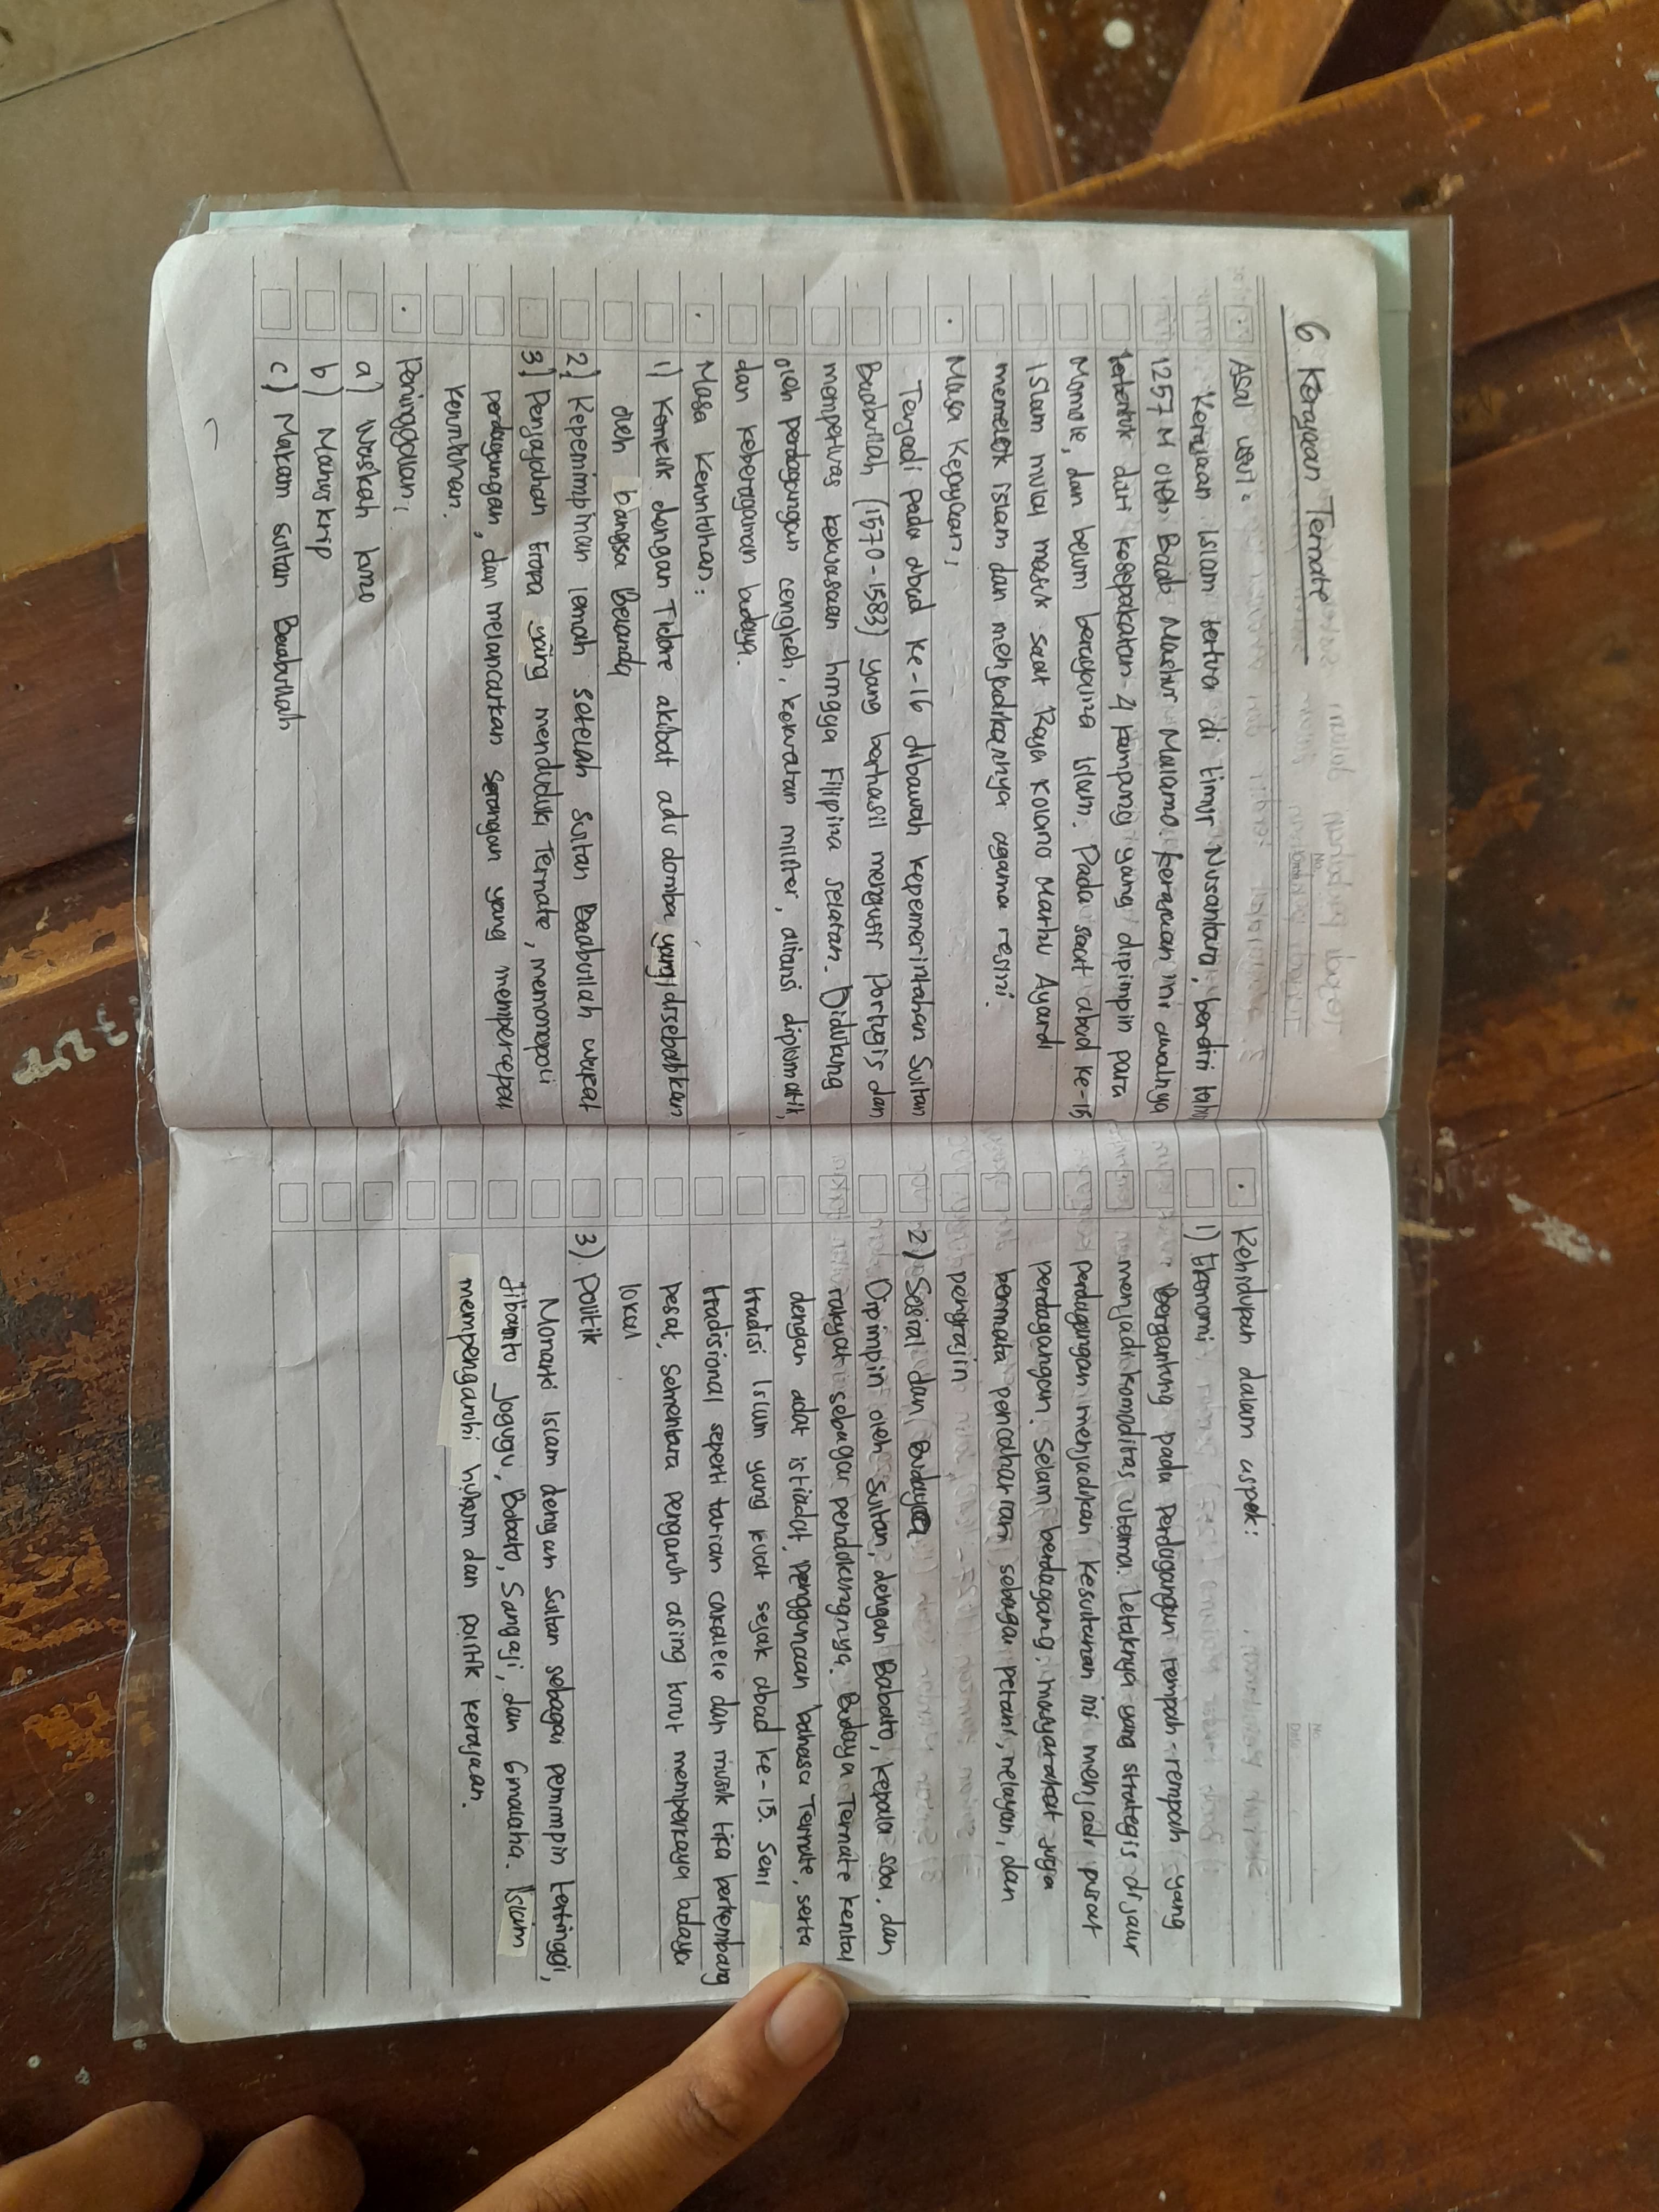 6. Kerajaan Ternate
Asal usul:
Kerajaan Islam tertua di timur Nusantara, berdiri
1257 M oleh Baab Mashur Malamo. Kerajaan ini awalnya
terbentuk dari kesepakatan 4 kampung yang dipimpin para
Momole, dan belum beragama Islam. Pada saat abad ke-15
Islam mulai masuk saat Raja Kolano Marhu Ayardi
memeluk islam dan menjadikannya agama resmi.
Masa Kejayaan;
Terjadi pada abad ke-16 dibawah kepemerintahan Sultan
Baabullah (1570-1583) yang berhasil mengusir Portugis dan
memperluas kekuasaan hingga Filipina selatan. Didukung
oleh perdagangan cengkeh, kekuatan militer, aliansi diplomatik,
dan keberagaman budaya.
Masa Keruntuhan:
1) Konflik dengan Tidore akibat adu domba yang disebabkan
oleh bangsa Belanda
2) Kepemimpinan lemah setelah Sultan Baabullah wafat
3) Penjajahan Eropa yang menduduki Ternate, memonopoli
perdagangan, dan melancarkan serangan yang mempercepat
keruntuhan.
Peninggalan;
a) Waskah kuno
b) Manuskrip
c) Makam Sultan Baabullah
No.
Date
Kehidupan dalam aspek:
1) Ekonomi
Bergantung pada perdagangan rempah-rempah yang
menjadi komoditas utama. Letaknya yang strategis di jalur
perdagangan menjadikan kesultanan ini menjadi pusat
perdagangan. Selain berdagang, masyarakat juga
bermata pencaharian sebagai petani, nelayan, dan
pengrajin
2) Sosial dan Budaya
Dipimpin oleh Sultan, dengan Babato, kepala soa, dan
rakyat sebagai pendukungnya. Budaya Ternate kental
dengan adat istiadat, penggunaan bahasa Ternate, serta
tradisi Islam yang kuat sejak abad ke-15. Seni
tradisional seperti tarian cakalele dan musik tifa berkembang
pesat, sementara pengaruh asing turut memperkaya budaya
lokal
3) Politik
Monarki Islam dengan Sultan sebagai pemimpin tertinggi,
dibantu Jogugu, Bobato, Sangaji, dan Gimalaha. Islam
mempengaruhi hukum dan politik kerajaan.